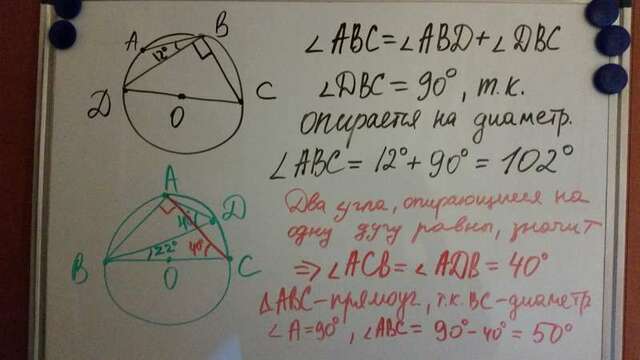 A B 12° D O C
∠ABC=∠ABD+∠DBC
∠DBC=90°, т.к.
опирается на диаметр.
∠ABC=12°+90°=102°
A D B 22° 40° O C
Два угла, опирающиеся на
одну дугу равны, значит
⇒∠ACB=∠ADB=40°
ΔABC-прямоуг, т.к. BC-диаметр
∠A=90°, ∠ABC=90°-40°=50°